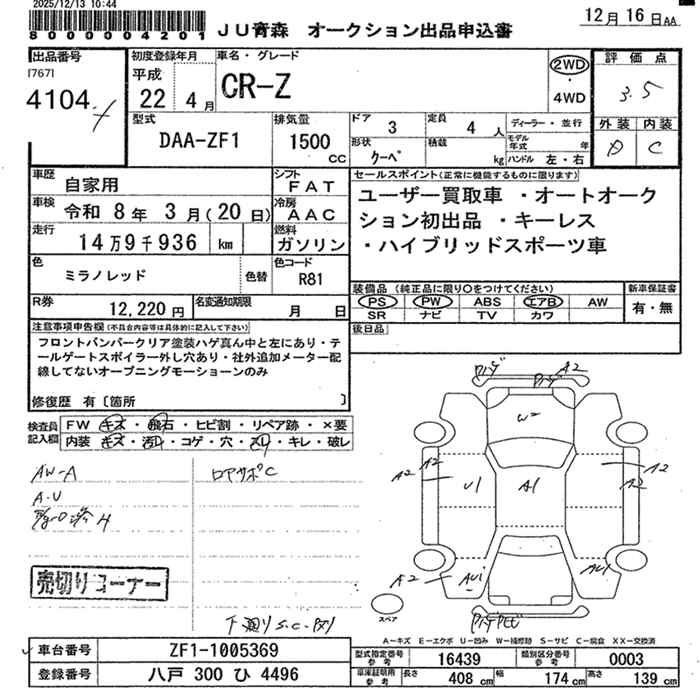 2025/12/13 10:44
8000004201
JU青森 オークション出品申込書
12月16日AA
出品番号
[767]
4104
初度登録年月
平成
22 4月
車名・グレード
CR-Z
2WD
・
4WD
評価点
3.5
外装 内装
D C
型式
DAA-ZF1
排気量
1500
cc
ドア
3
定員
4人
形状
クーペ
積載
kg
ディーラー・並行
モデル年式 年
ハンドル 左・右
車歴
自家用
シフト
FAT
セールスポイント(正常に機能するものに限ります)
ユーザー買取車 ・オートオーク
ション初出品 ・キーレス
・ハイブリッドスポーツ車
車検
令和 8年 3月(20日)
冷房
AAC
走行
14万9千936 km
燃料
ガソリン
色
ミラノレッド
色替
色コード
R81
装備品(純正品に限り○をつけてください)
PS PW ABS エアB AW
SR ナビ TV カワ
新車保証書
有・無
R券
12,220円
名変通知期限
月 日
後日品
注意事項申告欄(不具合内容等は具体的に記入して下さい)
フロントバンパークリア塗装ハゲ真ん中と左にあり・テ
ールゲートスポイラー外し穴あり・社外追加メーター配
線してないオープニングモーショーンのみ
修復歴 有〔箇所 〕
検査員記入欄
FW キズ・飛石・ヒビ割・リペア跡・×要
内装 キズ・汚レ・コゲ・穴・スレ・キレ・破レ
AW-A
A・U
ロアサポC
売切りコーナー
下廻りS.C-
A2
W2
A2
A2
U1
A1
A2
A2
A2
AU1
AU1
スペア
A-キズ E-エクボ U-凹み W-補修跡 S-サビ C-腐食 XX-交換済
車台番号
ZF1-1005369
登録番号
八戸 300 ひ 4496
型式指定番号 参考
16439
類別区分番号 参考
0003
車庫証明用 参考
長さ 408cm
幅 174cm
高さ 139cm